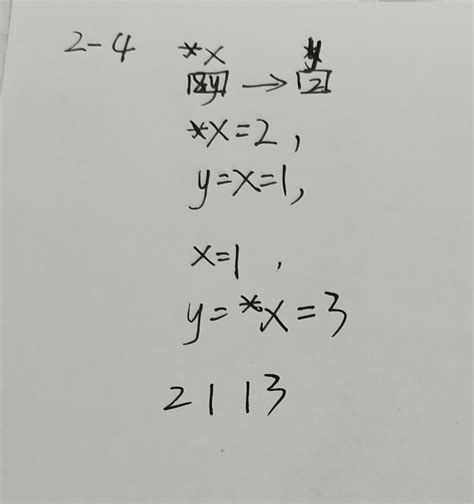 2-4 *x y
&y → 2
*x=2,
y=x=1,
x=1,
y=*x=3
2 1 1 3